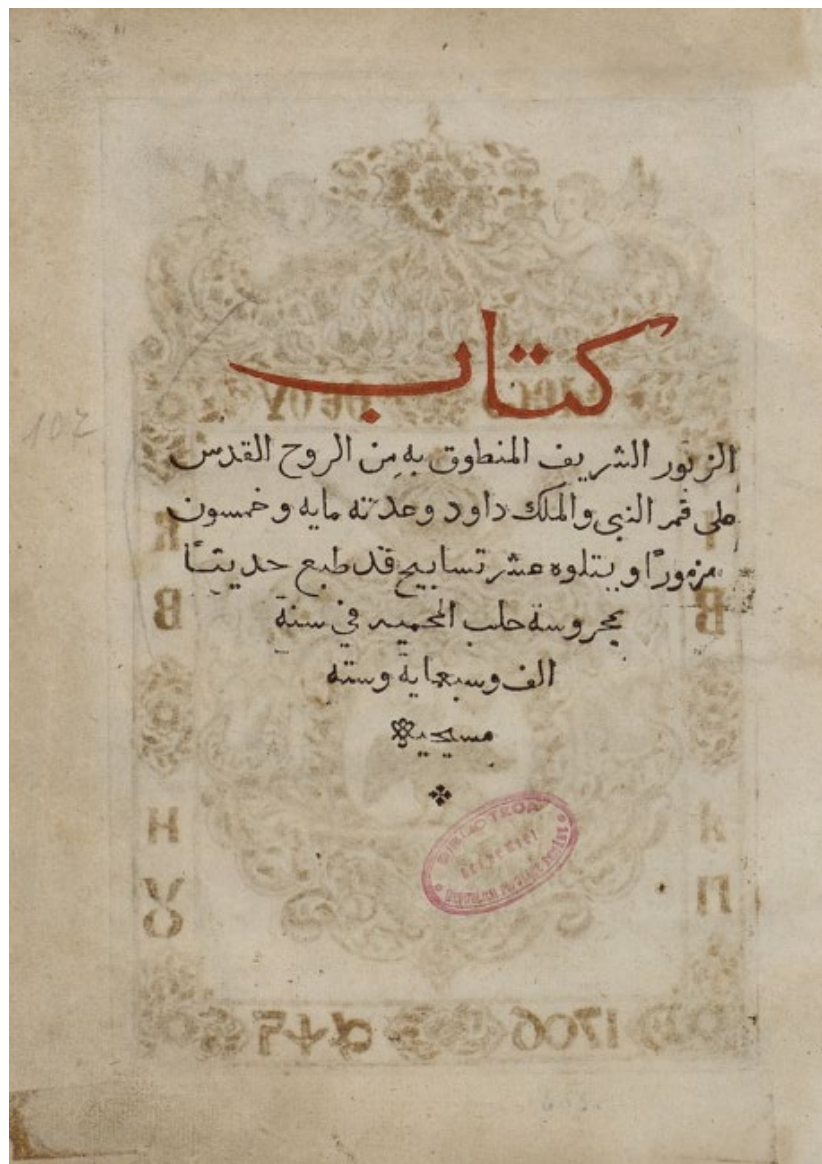 كتاب
الزبور الشريف المنطوق به من الروح القدس
على فمر النبي والملك داود وعدته مايه وخمسون
مزمورًا ويتلوه عشر تسابيح قد طبع حديثًا
بمحروسة حلب المحميه في سنة
الف وسبعماية وسته
مسيحية
102
BIBLIOTECA
1706